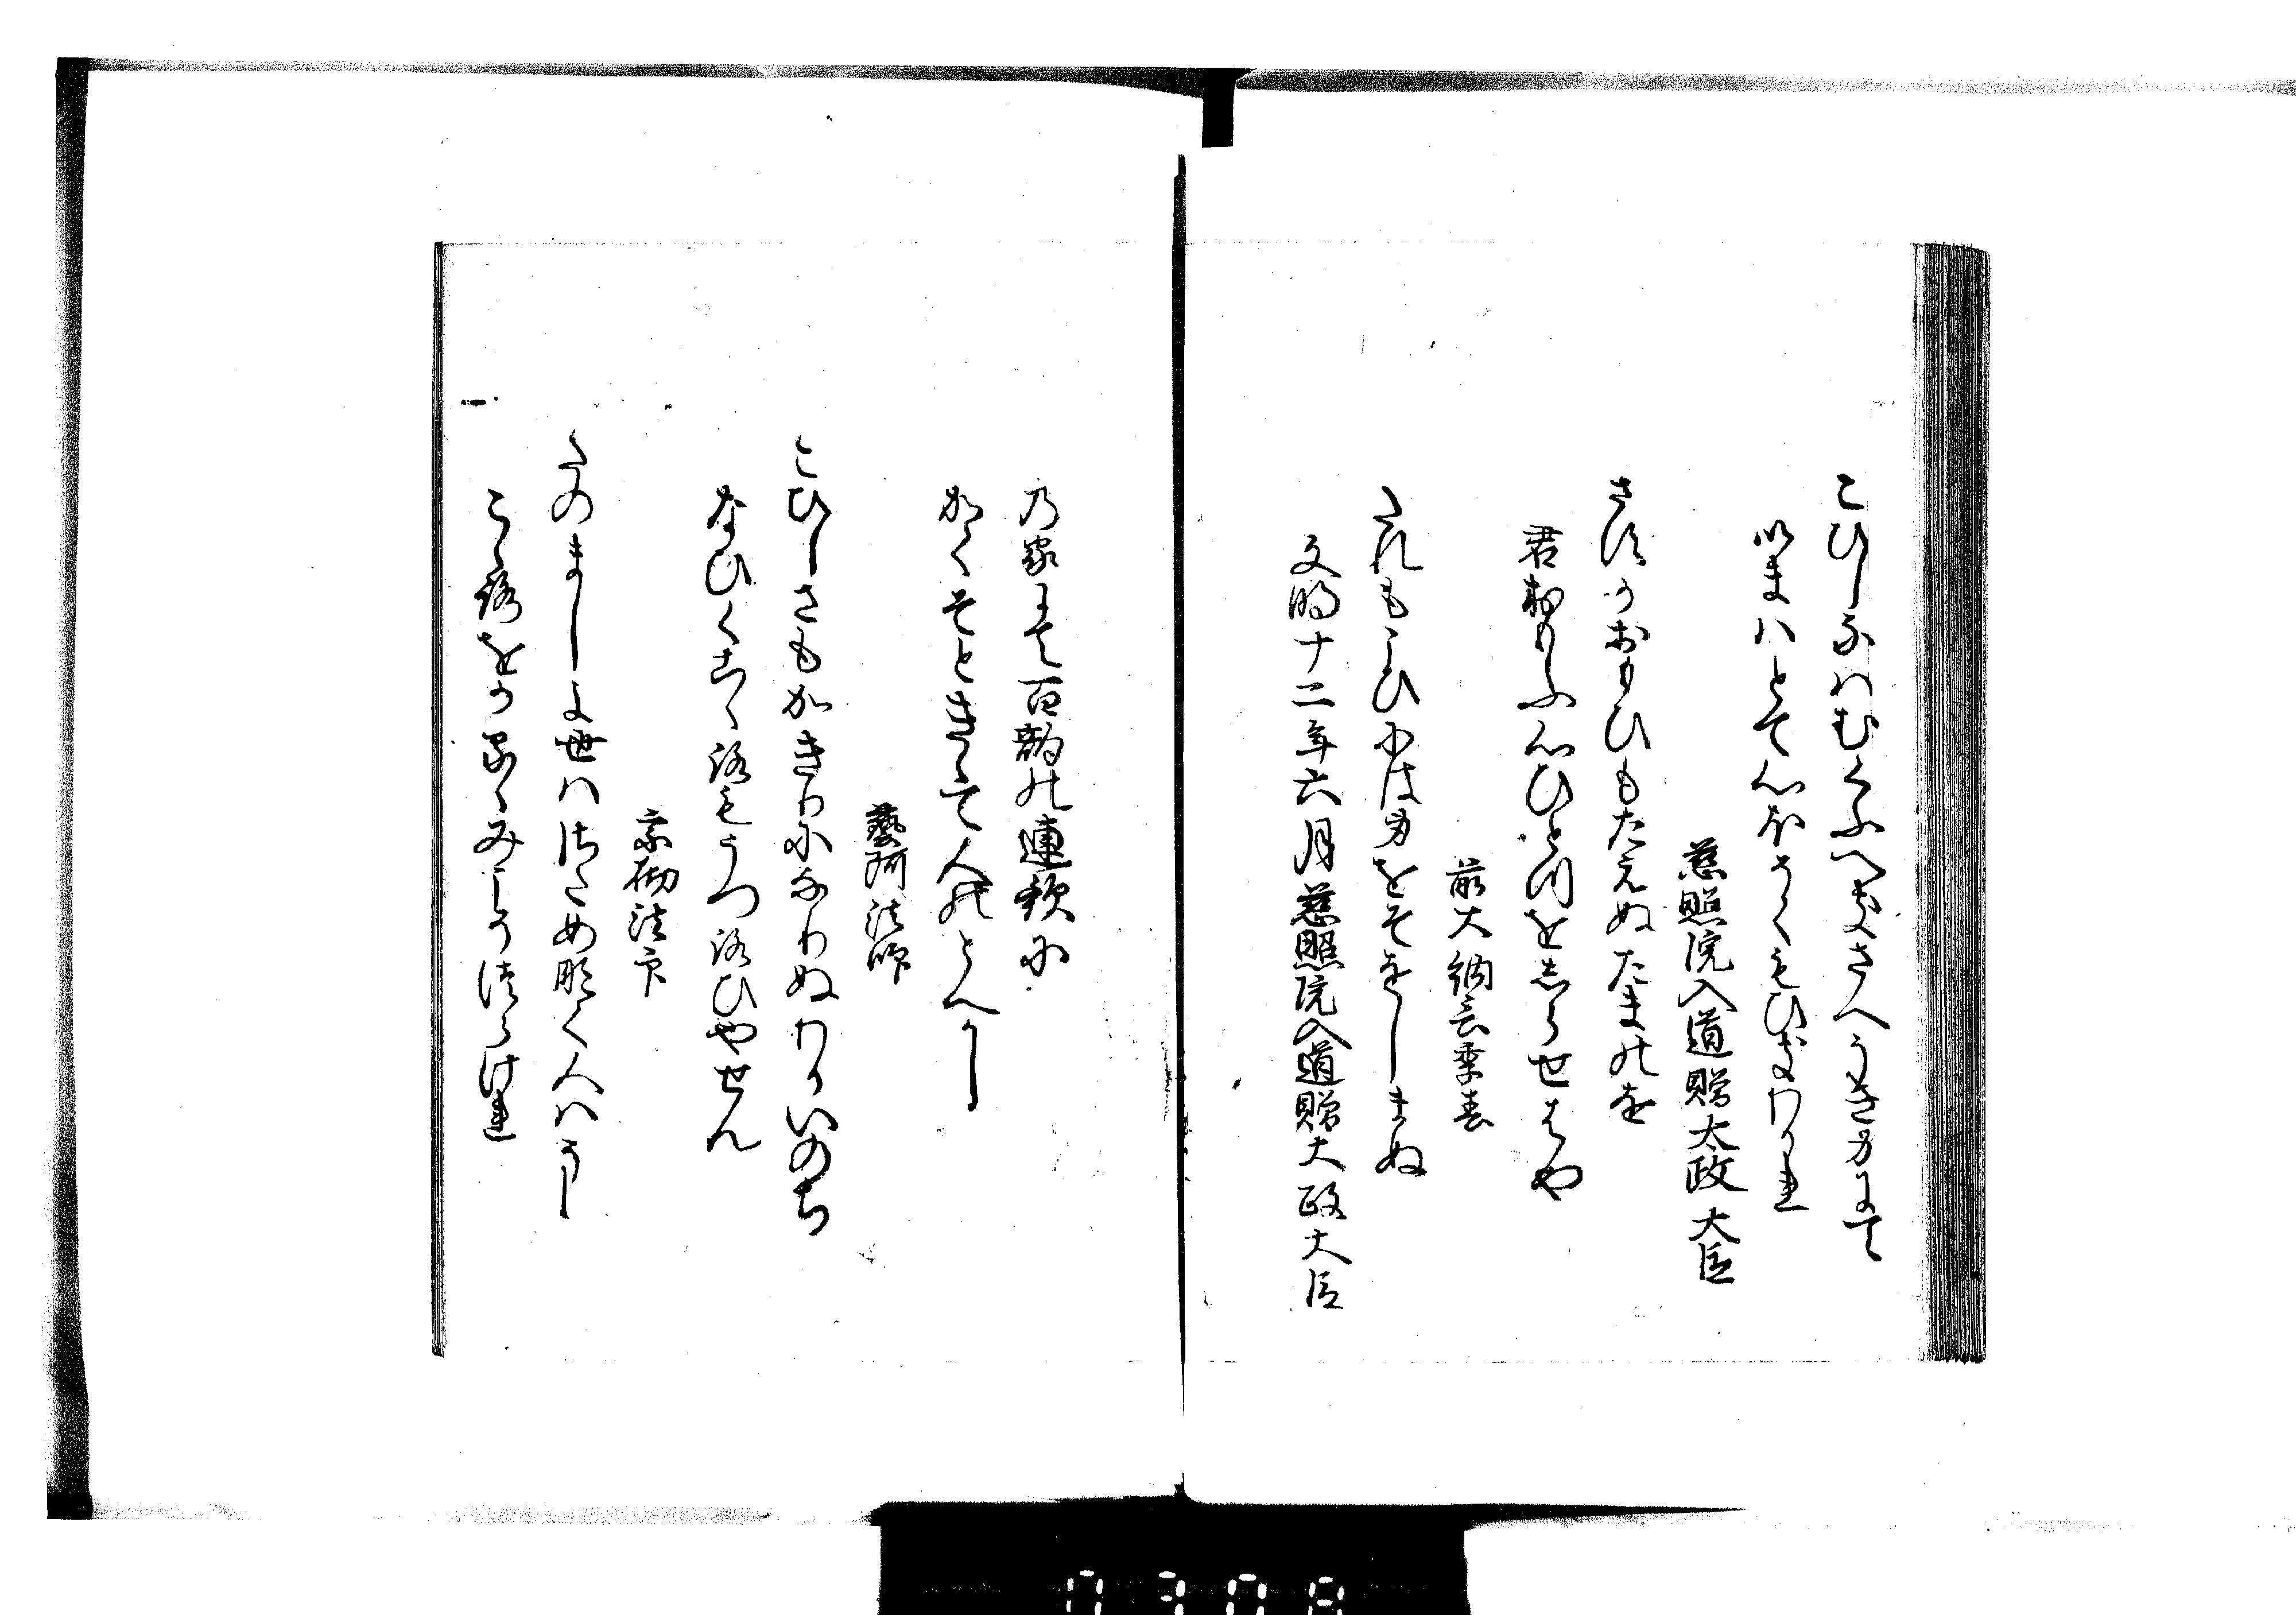 こひしなはむくふへきさへうき身にて
いまはとて心ほそくもひきわかれ
慈照院入道贈太政大臣
さすかおもひもたえぬたまのを
君おもふ心ひとつをしらせはや
前大納言季春
たれもこひには身をそをしまぬ
文明十二年六月慈照院入道贈太政大臣
乃家にて百韵の連歌に
かくそときゝて人のとへかし
藝阿法師
こひしさもかきりになりぬわかいのち
なひくこゝろもうつろひやせん
宗砌法師
たのましよ世はさためなく人はうし
こゝろをかるゝみこそつらけれ
0308